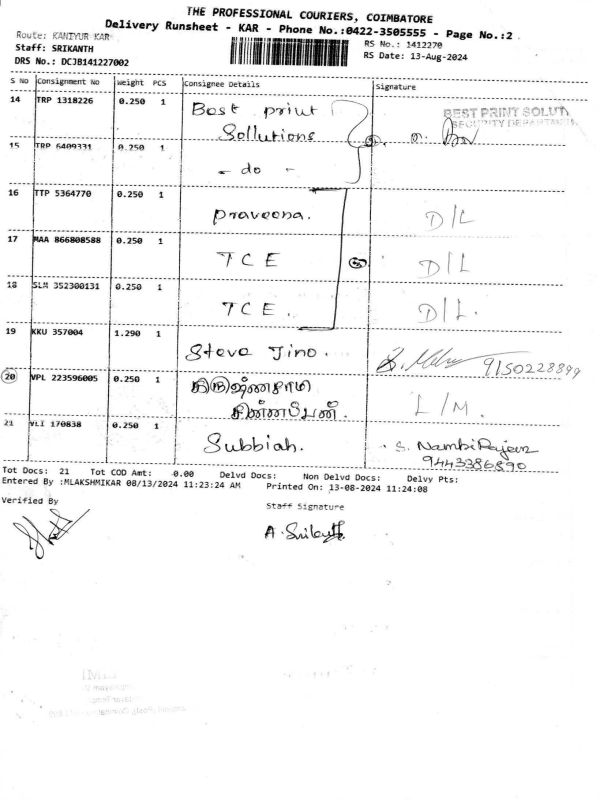 THE PROFESSIONAL COURIERS, COIMBATORE
Delivery Runsheet - KAR - Phone No.:0422-3505555 - Page No.:2
Route: KANIYUR KAR
Staff: SRIKANTH
RS No.: 1412270
DRS No.: DCJB141227002
RS Date: 13-Aug-2024
S No Consignment No Weight PCS Consignee Details Signature
14 TRP 1318226 0.250 1 Best print Sollutions
BEST PRINT SOLUTI
SECURITY DEPARTMENT
15 TRP 6409331 0.250 1 - do -
16 TTP 5364770 0.250 1 Praveena. D/L
17 MAA 866808588 0.250 1 TCE D/L
18 SLM 352300131 0.250 1 TCE. D/L.
19 KKU 357004 1.290 1 Steve Jino. 9150228899
20 VPL 223596005 0.250 1 L/M.
21 VLI 170838 0.250 1 Subbiah. S. NambiRajan
9443386890
Tot Docs: 21 Tot COD Amt: 0.00 Delvd Docs: Non Delvd Docs: Delvy Pts:
Entered By :MLAKSHMIKAR 08/13/2024 11:23:24 AM Printed On: 13-08-2024 11:24:08
Verified By
Staff Signature
A. Srikanth